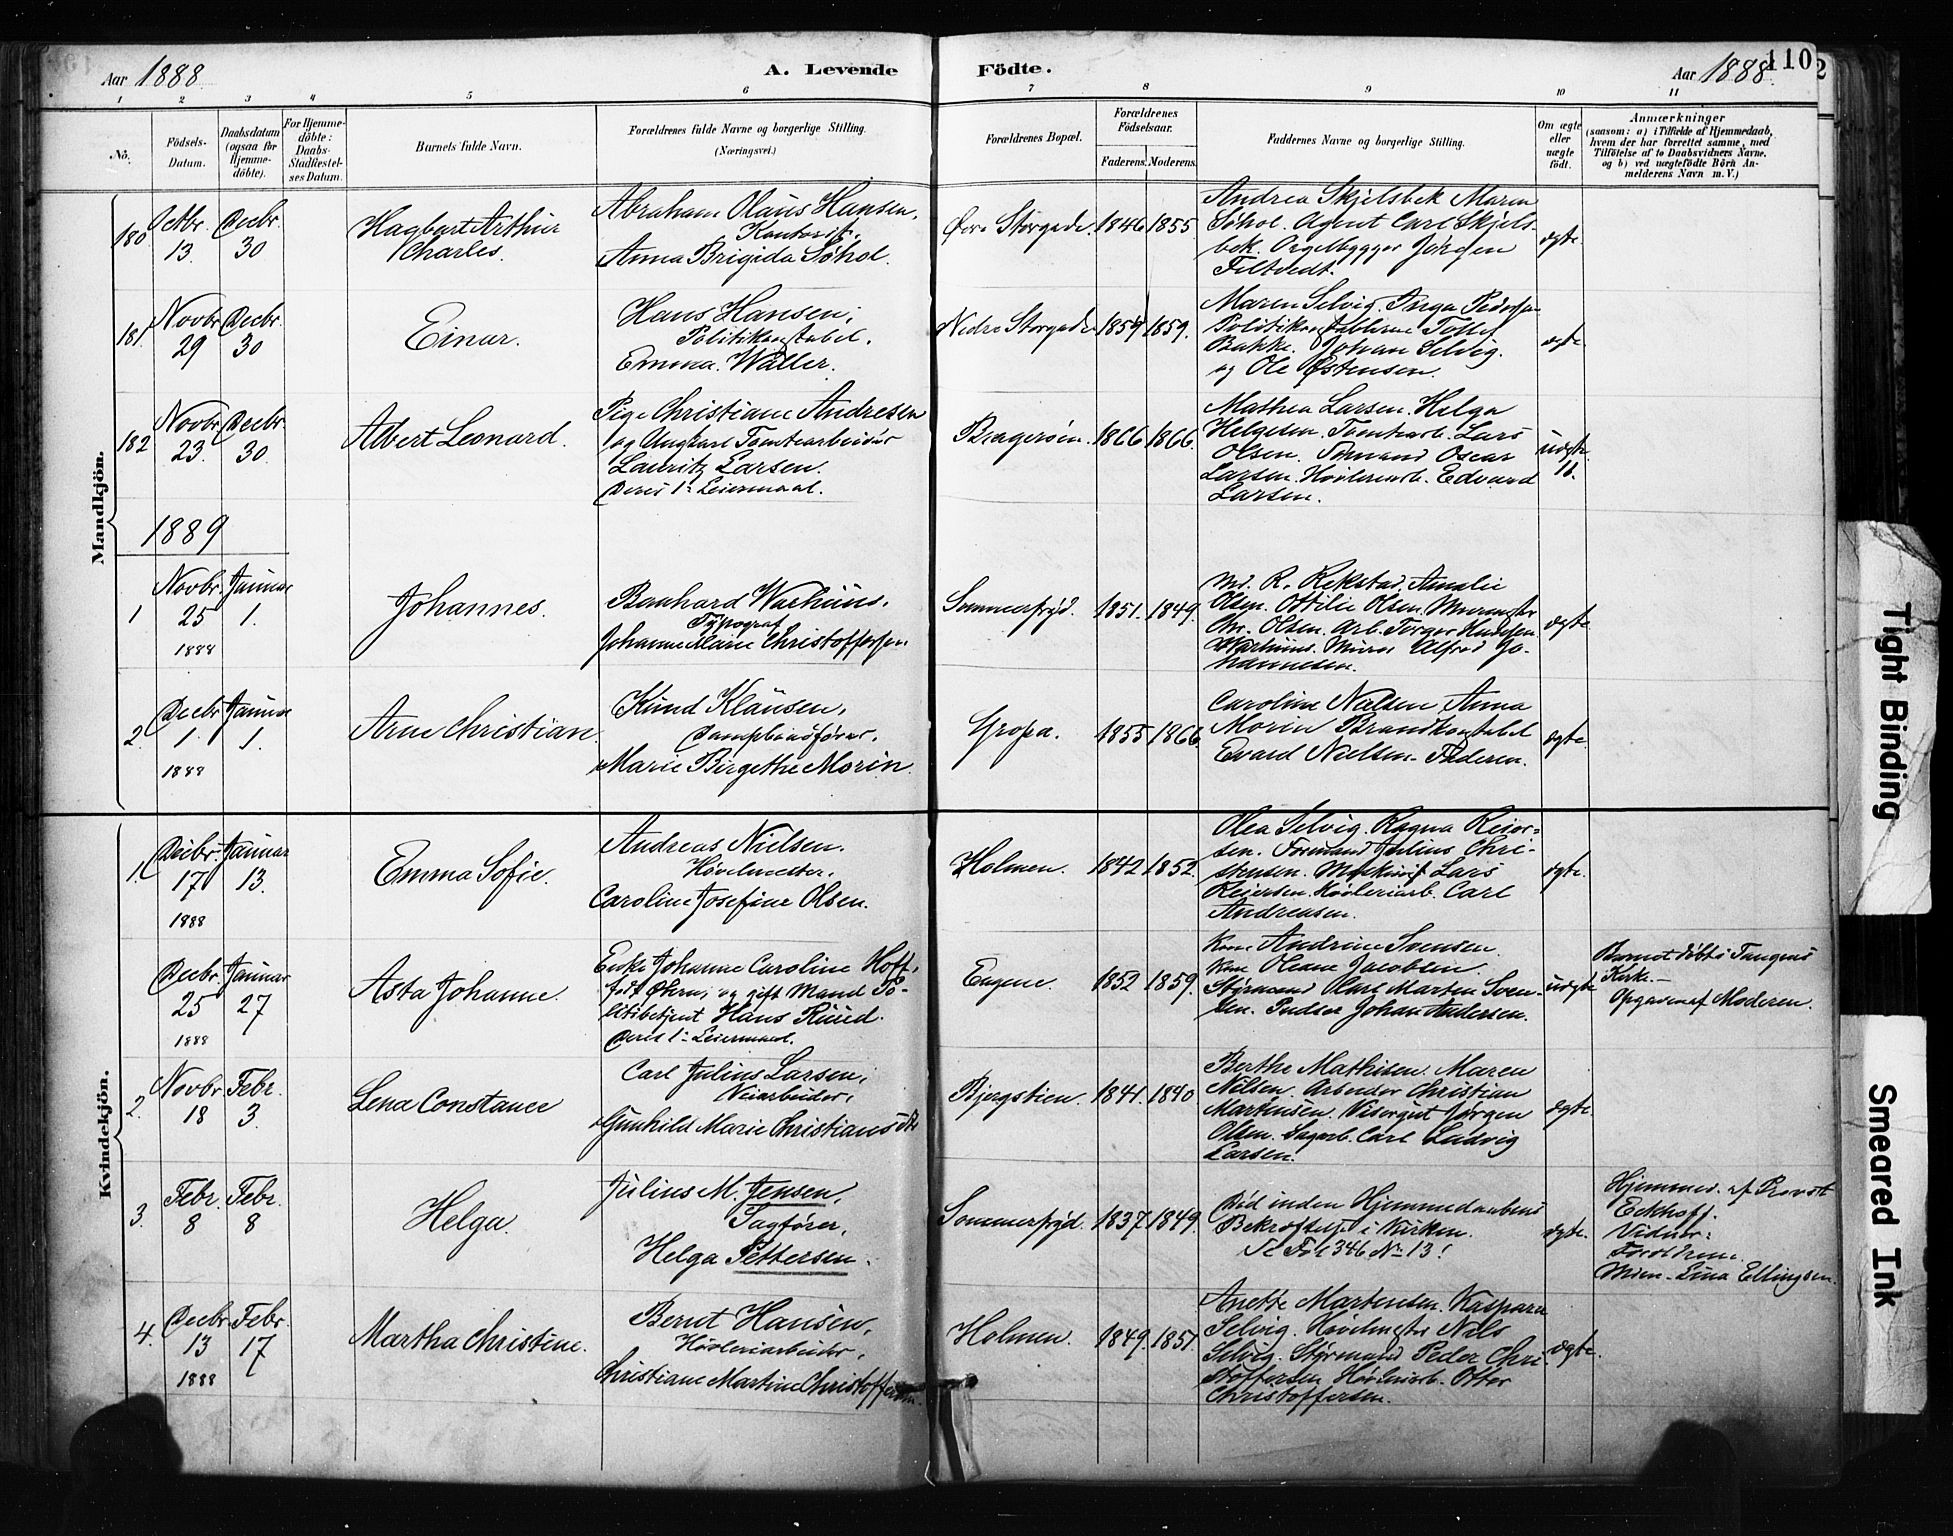 Aar 1888
A. Levende Fødte.
Aar 1888.
110
2
1 2 3 4 5 6 7 8 9 10 11
No.
Födsels-
Datum.
Daabsdatum
(ogsaa for
Hjemme-
döbte).
For Hjemme-
döbte:
Daabs-
Stadfæstel-
ses Datum.
Barnets fulde Navn.
Forældrenes fulde Navne og borgerlige Stilling.
(Næringsvei.)
Forældrenes Bopæl.
Forældrenes
Födselsaar.
Faderens. Moderens.
Faddernes Navne og borgerlige Stilling.
Om ægte
eller
uægte
født.
Anmærkninger
(saasom: a) i Tilfælde af Hjemmedaab,
hvem der har forrettet samme, med
Tilföielse af to Daabsvidners Navne,
og b) ved uægtefödte Börn An-
melderens Navn m. V.)
Mandkjön.
180
Octbr.
13.
Decbr.
30
Hagbart Arthur
Charles.
Abraham Olaus Hansen,
Kontorist.
Anna Brigida Söhol.
Øvre Storgade.
1846 1855
Andrea Skjelsbek Maren
Söhol. Agent Carl Skjels-
bek. Orgelbygger Jörgen
Filtvedt.
ægte.
181.
Novbr.
29
Decbr.
30
Einar.
Hans Hansen,
Politikonstabel.
Emma Waller.
Nedre Storgade
1859.
Maren Selvig. Inga Pedersen
Bakke. Johan Selvig.
og Ole Østensen.
ægte
182
Novbr.
23.
Decbr.
30.
Albert Leonard.
Pige Christiane Andresen
og Ungkarl Tomtearbeider
Lauritz Larsen.
Deres 1ste Leiermaal.
Bragerøen.
1866 1866.
Mathea Larsen. Helga
Helgesen. Tomtearb. Lars
Olsen. Formand Oscar
Larsen. Høvleriarb. Edvard
Larsen.
uægte
1889
1
Novbr.
25
1888
Januar
1.
Johannes.
Typograf
Johanne Marie Christoffersen.
Sommerfryd.
1851. 1849.
Md. R. Rekstad. Amalie
Olsen. Ottilie Olsen. Murmester
Chr. Olsen. Arb.
Warhuus. Murer Alfred Jo-
hannesen.
ægte
2.
Decbr.
1.
1888
Januar
1.
Arne Christian.
Knud Klausen,
Marie Birgethe Morin
Gropa.
1855 1866
Caroline Nielsen. Anna
Morin Brandkonstabel
Evard Nielsen. Faderen.
ægte.
Kvindekjön.
1.
Decbr.
17
1888
Januar
13.
Emma Sofie.
Andreas Nielsen.
Høvelmester.
Caroline Josefine Olsen.
Holmen.
1842 1852.
Olea Selvig. Ragna Reier-
sen. Formand Julius Chri-
stensen. Maskinist Lars
Reiersen. Høvleriarb. Carl
Andreasen.
ægte.
Decbr.
25
1888
Januar
27
Asta Johanne.
Enke Johanne Caroline Hoff,
født Øhrn, og gift Mand Po-
litibetjent Hans Ruud.
Deres 1ste Leiermaal.
Engene.
1852 1859.
Kone Andrine Svensen.
Kone Oleane Jacobsen.
Styrmand Olaf Martin Sven-
sen. Pudser Johan Andersen.
uægte
Barnet døbt i Tangens
Kirke.—
Opgaven af Moderen.
2.
Novbr.
18
Febr.
3.
Lena Constance
Carl Julius Larsen,
Veiarbeider,
Gunhild Marie Christiansdtr
Bjergstien.
1841. 1840
Berthe Mathisen. Maren
Nilsen. Arbeider Christian
Martinsen. Visergut Jørgen
Olsen. Sagarb. Carl Ludvig
Larsen.
ægte.
3.
Febr.
8
Febr.
8
Helga.
Julius M. Jensen,
Sagfører,
Helga Pettersen.
Sommerfryd.
1837. 1849.
Død inden Hjemmedaabens
Bekræftelse i Kirken.
Se Fol 346 No 13!
ægte.
Hjemmed. af Provst
Eckhoff.
Vidner:
Forældrene
Lina Ellingsen.
4.
Decbr.
13
1888
Febr.
17
Martha Christine.
Bernt Hansen,
Høvleriarbeider,
Christiane Martine Christoffersen.
Holmen.
1849. 1851.
Anette Martinsen. Kaspara
Selvig. Høvelmester Nils
Selvig. Styrmand Peder Chri-
stoffersen Høvleriarb. Otter
Christoffersen.
ægte.
Tight Binding
Smeared Ink